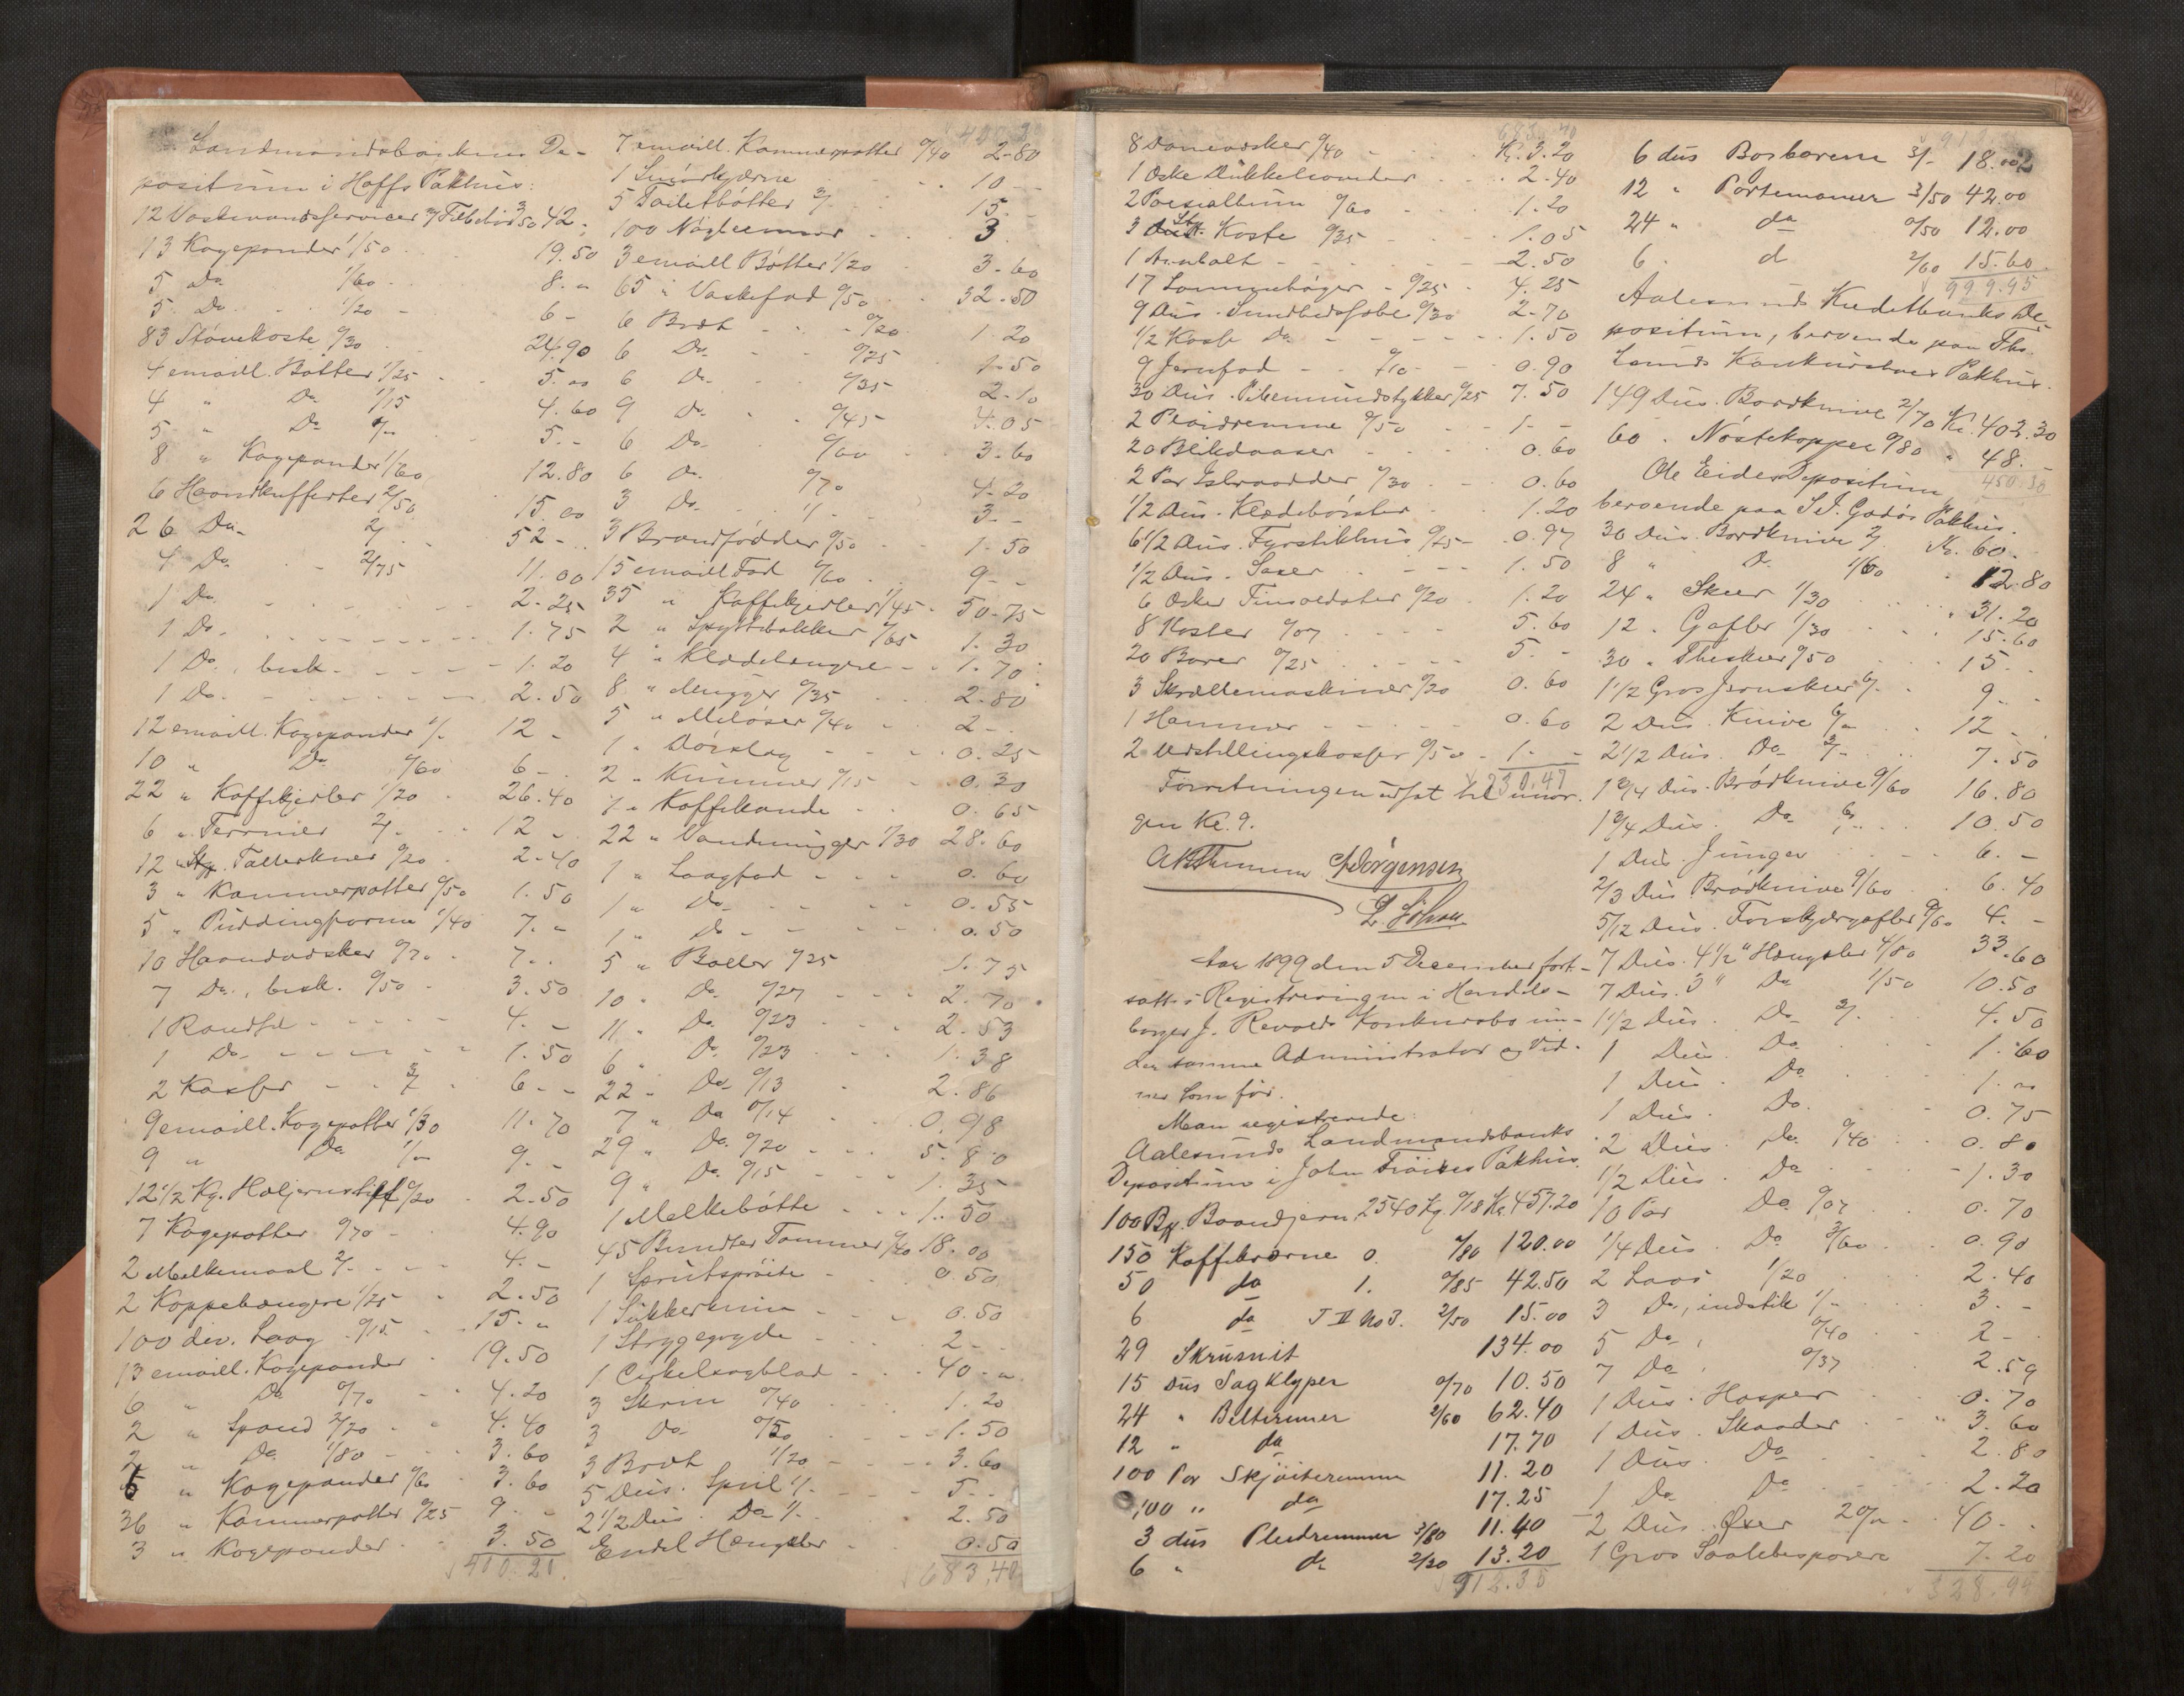 Landmandsbankens De-
positum i Hoffs Pakhus:
12 Vaskevandsservicer m/Tilbehör 3/50 42.
13 Kogepander 1/50 19.50
5 Do 1/60 8. "
5 Do 1/20 6 -
83 Stövekoste 0/30 24.90
4 emaill. Bötter 1/25 5. 00
4 " Do 1/15 4.60
5 " Do 1/- 5. -
8 " Kogepander 1/60 12.80
6 Haandkufferter 2/50 15.00
26 Do 2/- 52 -
4 Do 2/75 11.00
1 Do 2.25
1 Do 1.75
1 Do, besk. 1.20
1 Do 2.50
12 emaill. Kogepander 1/- 12 -
10 " Do 0/60 6 -
22 " Kaffekjedler 1/20 26.40
6 " Terriner 2/- 12 -
12 Stk. Tallerkner 0/20 2.40
3 " Kammerpotter 0/50 1.50
5 " Puddingforme 1/40 7. -
10 Haandvadsker 0/70 7. -
7 Do., besk. 0/50 3.50
1 Randsel 4. -
1 Do 1.50
2 Kasser 3/- 6 - -
9 emaill. Kogepotter 1/30 11.70
9 " Do 1/- 9. -
12 1/2 Kg. Hæljernstift 0/20 2.50
7 Kogepotter 0/70 4.90
2 Melkemaal 2/- 4. -
2 Koppehængere 1/25 2.50
100 div. Laag 0/15 15. "
13 emaill. Kogepander 19.50
6 " Do 0/70 4.20
2 " Spand 2/20 4.40
2 " Do 1/80 3.60
6 " Kogepander 0/60 3.60
36 " Kammerpotter 0/25 9. -
3 " Kogepander 3.50
410.20
7 emaill. Kammerpotter 0/40 2-80
1 Smörkjærne 10 -
5 Toiletbötter 3/- 15. -
100 Nögleemner 3
3 emaill Bötter 1/20 3.60
65 " Vaskefad 0/50 32.50
6 Bræt 0/20 1.20
6 Do 0/25 1.50
6 Do 0/35 2.10
9 Do 0/45 4.05
6 Do 0/60 3.60
6 Do 0/70 4.20
3 Do 1/- 3 -
3 Brandfödder 0/50 1.50
15 emaill Fad 0/60 9 - -
35 " Kaffekjedler 1/45 50-75
2 " Spyttebakker 0/65 1.30
4 " Klædehængere 1.70
8 " Mugger 0/35 2.80
5 " Melöser 0/40 2 -
1 " Dörslag 0.25
2 " Kummer 0/15 0.30
1 " Kaffekande 0.65
22 " Vandmugger 1/30 28.60
1 " Laagfad 0.60
1 " Do 0.55
1 " Do 0.50
5 " Boller 0/25 1.75
10 " Do 0/27 2.70
11 " Do 0/23 2.53
6 " Do 0/23 1.38
22 " Do 0/13 2.86
7 " Do 0/14 0.98
29 " Do 0/20 5.80
9 " Do 0/15 1.35
1 Melkebötte 1.50
45 Bundter Tommer 0/40 18.00
1 Sprutspröite 0.50
1 Sukkerkniv 0.50
1 Strygegryde 2 -
1 Cirkelsagblad 40 - "
3 Skrin 0/40 1.20
3 Do 0/50 1.50
3 Bræt 1/20 3.60
5 Dus. Spril 1/- 5 -
2 1/2 Dus. Do 1/- 2.50
Endel Hængsler 0.50
683.40
683.40
8 Damevadsker 0/40 Kr. 3.20
1 Æske Dukkehoveder 2.40
2 Poesialbum 0/60 1.20
3 Stk. Koste 0/35 1.05
1 Ambolt 2.50
17 Lommebøger 0/25 4.25
9 Dus. Sundhedssæbe 0/30 2.70
1/2 Kasse Do 1.50
9 Jernfad 0/10 0.90
30 Dus. Pibemundstykker 0/25 7.50
2 Plaidremme 0/50 1 -
20 Blikdaaser 0.60
2 Par Isbrodder 0/30 0.60
1/2 Dus. Klædebörster 1.20
6 1/2 Dus. Fyrstikhus 0/15 0.97
1/2 Dus. Saxer 1.50
6 Æsker Tinsoldater 0/20 1.20
8 Koster 0/07 5.60
20 Borer 0/25 5. -
3 Skrællemaskiner 0/20 0.60
1 Hammer 0.60
2 Udstillingskasser 0/50 1. -
230.47
Forretningen udsat til imor-
gen Kl. 9.
Jörgensen
Aar 1899 den 5 December fort-
sattes Registreringen i Handels-
borger J. Revolds Konkursbo un-
der samme Administrator og Vid-
ner som för.
Man registrerede:
Aalesunds Landmandsbanks
Depositum i John Fröises Pakhus.
100 Bg. Baandjern 2540 Kg. 0/18 Kr. 457.20
150 Kaffekværne 0. 0/80 120.00
50 do 1. 0/85 42.50
6 do T II No 3. 2/50 15.00
29 Skrusnit 134.00
15 Dus Sagklyper 0/70 10.50
24 " Bælteremer 2/60 62.40
12 " do 17.70
100 Par Skjöiteremme 11.20
100 " do 17.25
3 dus Pledremmer 3/80 11.40
6 " do 2/20 13.20
912.35
6 dus Borbærere 3/- 18.00
12 " Portemonær 3/50 42.00
24 " do 0/50 12.00
6 " d 2/60 15.60
999.95
Aalesunds Kreditbanks De-
positum, beroende paa Ths.
Lunds Konkursboes Pakhus.
149 Dus. Bordknive 2/70 Kr. 402.30
60 " Nöstekopper 0/80 " 48. -
450.30
Ole Eides Depositum
beroende paa S.J. Godös Pakhus.
30 Dus. Bordknive 2/- Kr. 60 -
8 " D. 1/60 12.80
24 " Skeer 1/30 31.20
12 " Gafler 1/30 15.60
30 " Theskeer 0/50 15 -
1 1/2 Gros Jernskeer 6/- 9 -
2 Dus. Knive 6/- 12 -
2 1/2 Dus. Do 3/- 7.50
1 3/4 Dus. Brödknive 9/60 16.80
1 3/4 Dus. Do 6/- 10.50
1 Dus. Junger 6. -
2/3 Dus Brödknive 9/60 6.40
5/12 Dus. Forskjærgafler 9/60 4. -
7 Dus. 4 1/2" Hængsler 4/80 33.60
7 Dus. 3" Do 1/50 10.50
1 1/2 Dus. Do 3/- 4.50
1 Dus. Do 1.60
1 Dus. Do 1. "
1 Dus. Do. 0.75
2 Dus. Do. 0/40 0.80
1/2 Dus. Do 1.30
10 Par Do 0/07 0.70
1/4 Dus. Do 3/60 0.90
2 Laas 1/20 2.40
3 Do., indstik 1/- 3. -
5 Do. 0/40 2 -
7 Do. 0/37 2.59
1 Dus. Hasper 0.70
1 Dus. Skaader 3.60
1 Dus. Do 2.80
1 Do Do 2.20
2 Dus. Öxer 20/- 40 -
1 Gros Saalebesparere 7.20
328.94